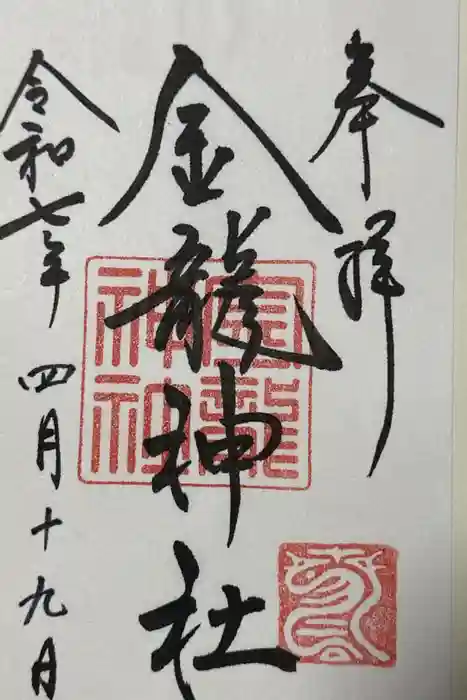 奉拝
金龍神社
令和七年 四月十九月
金龍
神社